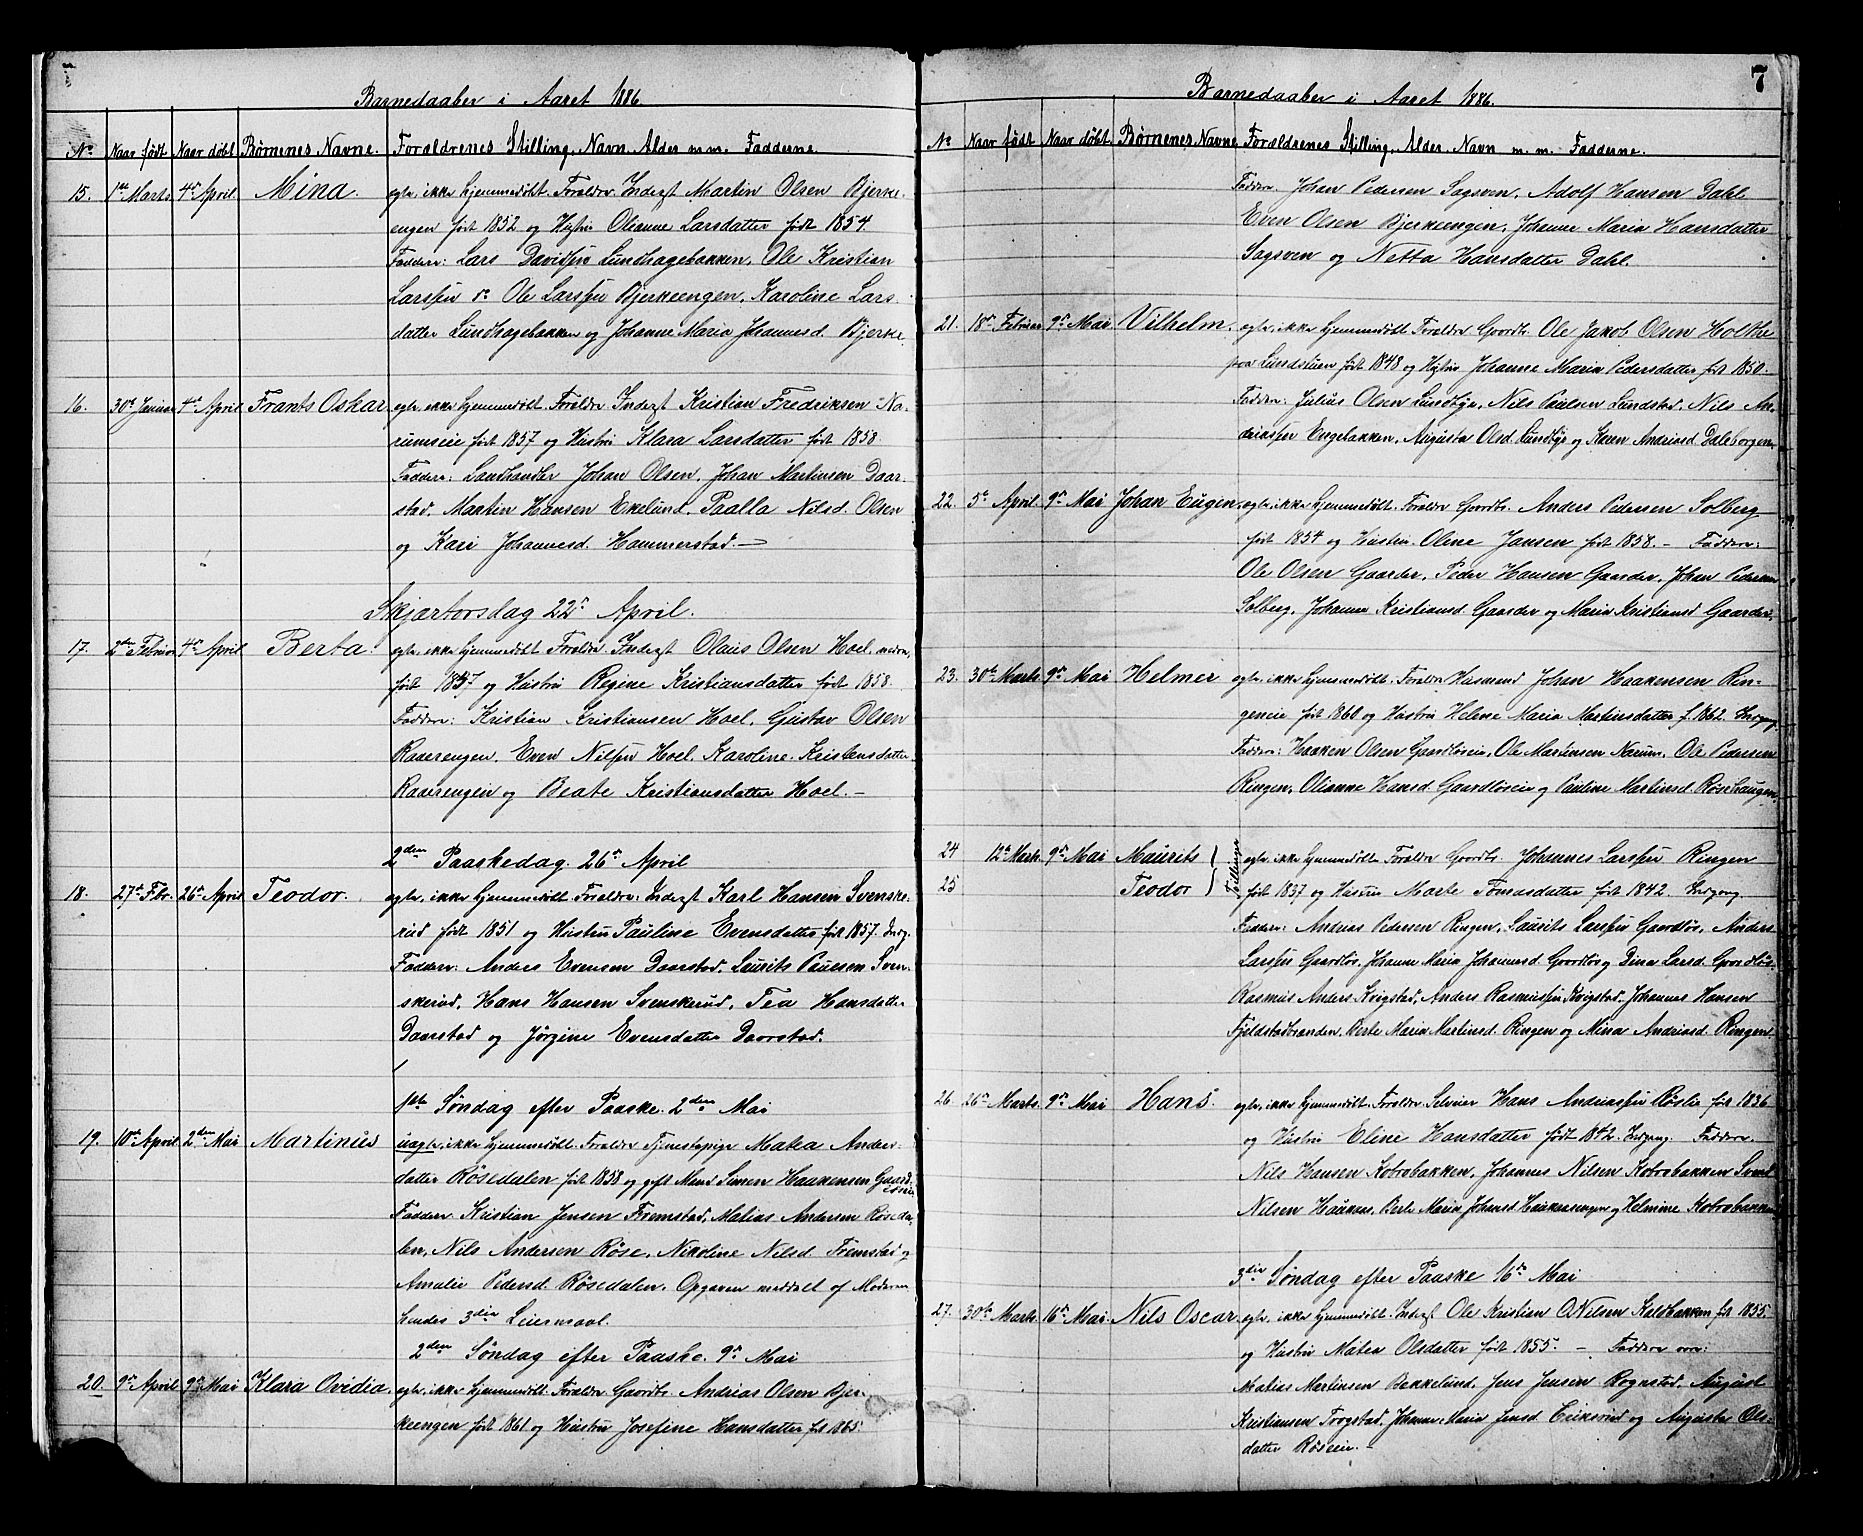 Barnedaaber i Aaret 1886.
No. Naar født Naar døbt Børnenes Navne. Forældrenes Stilling, Navn, Alder m.m. Fadderne.
15. 1ste Marts 4de April Mina. egte, ikke hjemmedøbt. Forældre: Inderst Martin Olsen Bjerke-
engen født 1852 og Hustru Olianne Larsdatter født 1854.
Faddere: Lars Davidsen Lundhagebakken, Ole Kristian
Larssen, Ole Larssen Bjerkeengen, Karoline Lars-
datter Lundhagebakken og Johanne Maria Johannesd. Bjerke.
16. 30te Januar 4de April Frants Oskar egte, ikke hjemmedøbt. Forældre Inderst Kristian Fredriksen Na-
rumseie født 1857 og Hustru Klara Larsdatter født 1858.
Faddere: Landhandler Johan Olsen, Johan Martinsen Daar-
stad, Martin Hansen Ekelund, Paalla Nilsd. Olsen
og Kari Johannesd. Hammerstad.—
Skjærtorsdag 22de April.
17. 2den Februar 4de April Berta. egte, ikke hjemmedøbt. Forældre: Inderst Olaus Olsen Hoel
født 1857 og Hustru Regine Kristiansdatter født 1858.
Faddere: Kristian Kristiansen Hoel, Gustav Olsen
Raaerengen, Even Nilssen Hoel, Karoline Kristensdatter
Raaerengen og Beate Kristiansdatter Hoel.—
2den Paaskedag 26de April
18. 27de Febr. 26de April Teodor. egte, ikke hjemmedøbt. Forældre: Inderst Karl Hansen Svenske-
rud født 1851 og Hustru Pauline Evensdatter født 1857. Indg.
Faddere: Andes Evensen Daarstad, Laurits Paulsen Sven-
skerud, Hans Hansen Svenskerud, Tea Hansdatter
Daarstad og Jørgine Evensdatter Daarstad.
1ste Søndag efter Paaske. 2den Mai
19. 10de April 2den Mai Martinus uegte, ikke hjemmedøbt. Forældre Tjenestepige Matea Anders-
datter Røsedalen født 1858 og gift Mand Simen Haakensen Gaard-
løseie
Faddere Kristian Jensen Fremstad, Matias Andersen Røseda-
len, Nils Andersen Røse, Nikoline Nilsd. Fremstad og
Amalie Pedersd. Røsedalen. Opgaven meddelt af Moderen
hendes 3die Leiermaal.
2den Søndag efter Paaske. 9de Mai
20. 9de April 9de Mai Klara Ovidia. egte, ikke hjemmedøbt. Forældre Gaardb. Andrias Olsen Bjer-
keengen født 1861 og Hustru Josefine Hansdatter født 1865.
7
Barnedaaber i Aaret 1886.
No Naar født Naar døbt Børnenes Navne Forældrenes Stilling, Alder, Navn m.m. Fadderne.
Faddere: Johan Pedersen Sagsven, Adolf Hansen Dahl
Even Olsen Bjerkeengen, Johanne Maria Hansdatter
Sagsven og Netta Hansdatter Dahl.
21. 18de Februar 9de Mai Vilhelm. egte, ikke hjemmedøbt. Forældre Gaardb. Ole Jakob Olsen Holthe
paa Lundstuen født 1848 og Hustru Johanne Maria Pedersdatter født 1850.
Faddere: Julius Olsen Lundbye, Nils Paulsen Lundstad, Nils An-
driassen Engebakken, Augusta Olsd. Lundbye og Karen Andriasd. Daleborgen.
22. 5te April. 9de Mai Johan Eugen. egte, ikke hjemmedøbt. Forældre Gaardb. Anders Pedersen Solberg
født 1854 og Hustru Oline Jansen født 1858.— Faddere:
Ole Olsen Gaarder, Peder Hansen Gaarder, Johan Pedersen
Solberg, Johanne Kristiansd. Gaarder og Maria Kristiansd. Gaarder.
23. 30te Marts 9de Mai Helmer egte, ikke hjemmedøbt. Forældre Husmand Johan Haakensen Rin-
geneie født 1860 og Hustru Helene Maria Martinsdatter f. 1862. Indgang.
Faddere: Haaken Olsen Gaardløseie, Ole Martinsen Narum, Ole Pedersen
Ringen, Olianne Hansd. Gaardløseie og Pauline Martinsd. Røsehaugen.
24 12te Marts 9de Mai Maurits } Tvillinger egte, ikke hjemmedøbt. Forældre Gaardb. Johannes Larssen Ringen
25 Teodor født 1837 og Hustru Marte Tomasdatter født 1842. Indgang.
Faddere: Andrias Pedersen Ringen, Laurits Larssen Gaardløs, Anders
Larssen Gaardløs, Johanne Maria Johannesd. Gaardløs og Dina Larsd. Gaardløs.
Rasmus Anders. Kvigstad, Anders Rasmussen Kvigstad, Johannes Hansen
Fjeldstadbranden, Berte Maria Martinsd. Ringen og Mina Andriasd. Ringen.
26. 26de Marts. 9de Mai Hans. egte, ikke hjemmedøbt. Forældre Selveier Hans Andriassen Røslie født 1836
og Hustru Eline Hansdatter født 1842. Indgang. Faddere:
Nils Hansen Kobrobakken, Johannes Nilsen Kobrobakken, Svend
Nilsen Haakaas, Berte Maria Johansd. Haakaasengen og Helmine Kobrobakken
3die Søndag efter Paaske 16de Mai
27. 30te Marts. 16de Mai. Nils Oscar. egte, ikke hjemmedøbt. Inderst Ole Kristian O. Nilsen Koldbakken født 1855.
og Hustru Matea Olsdatter født 1855.— Faddere ere:
Matias Martinsen Bekkelund, Jens Jensen Rognstad, August
Kristiansen Trogstad, Johanne Maria Jensd. Eriksrud og Augusta Ols-
datter Røseie.—